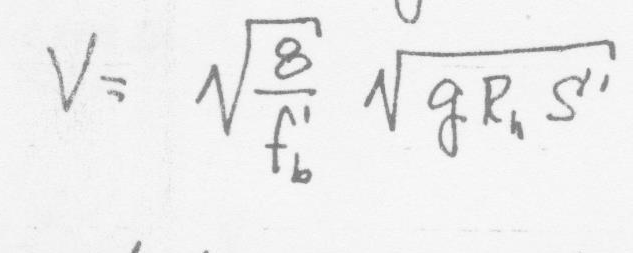 V = √(8/f'_b) √(g R_h S'')